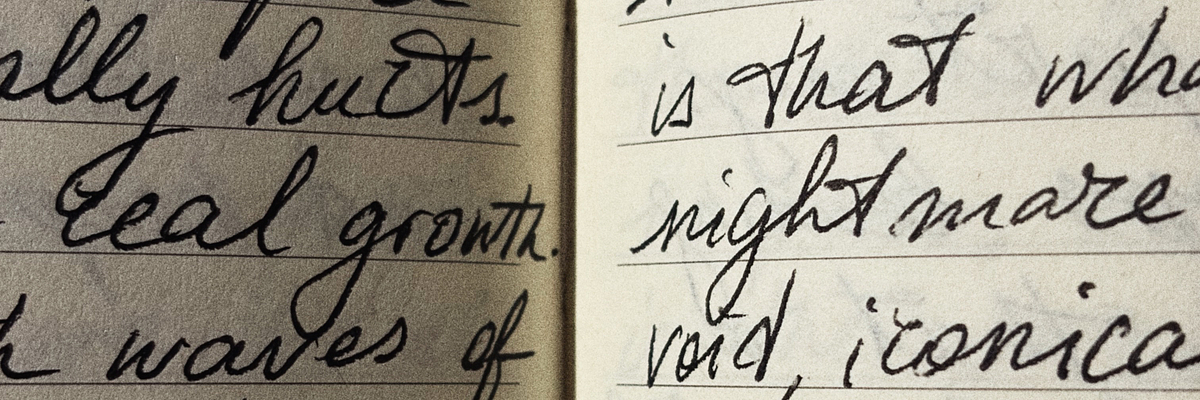 ally hurts.
real growth.
waves of
is that
nightmare
void, ironica